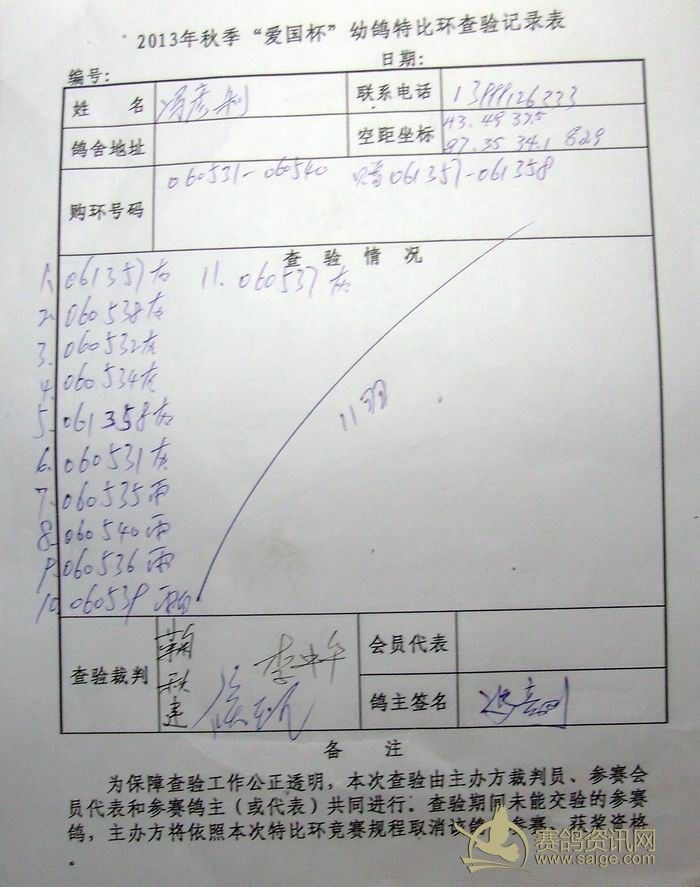 2013年秋季“爱国杯”幼鸽特比环查验记录表
编号： 日期：
姓 名 冯彦利 联系电话 13999126333
鸽舍地址 空距坐标 43.49 37.5
97.35 34.1 829
购环号码 060531-060540 赠061357-061358
查 验 情 况
1. 061357灰 11. 060537灰
2. 060538灰
3. 060532灰
4. 060534灰
5. 061358灰
6. 060531灰
7. 060535雨
8. 060540雨
9. 060536雨
10. 060539雨白
11羽
查验裁判 会员代表
鸽主签名
备 注
为保障查验工作公正透明，本次查验由主办方裁判员、参赛会
员代表和参赛鸽主（或代表）共同进行。查验期间未能交验的参赛
鸽，主办方将依照本次特比环竞赛规程取消该鸽参赛、获奖资格
。
赛鸽资讯网
www.saige.com